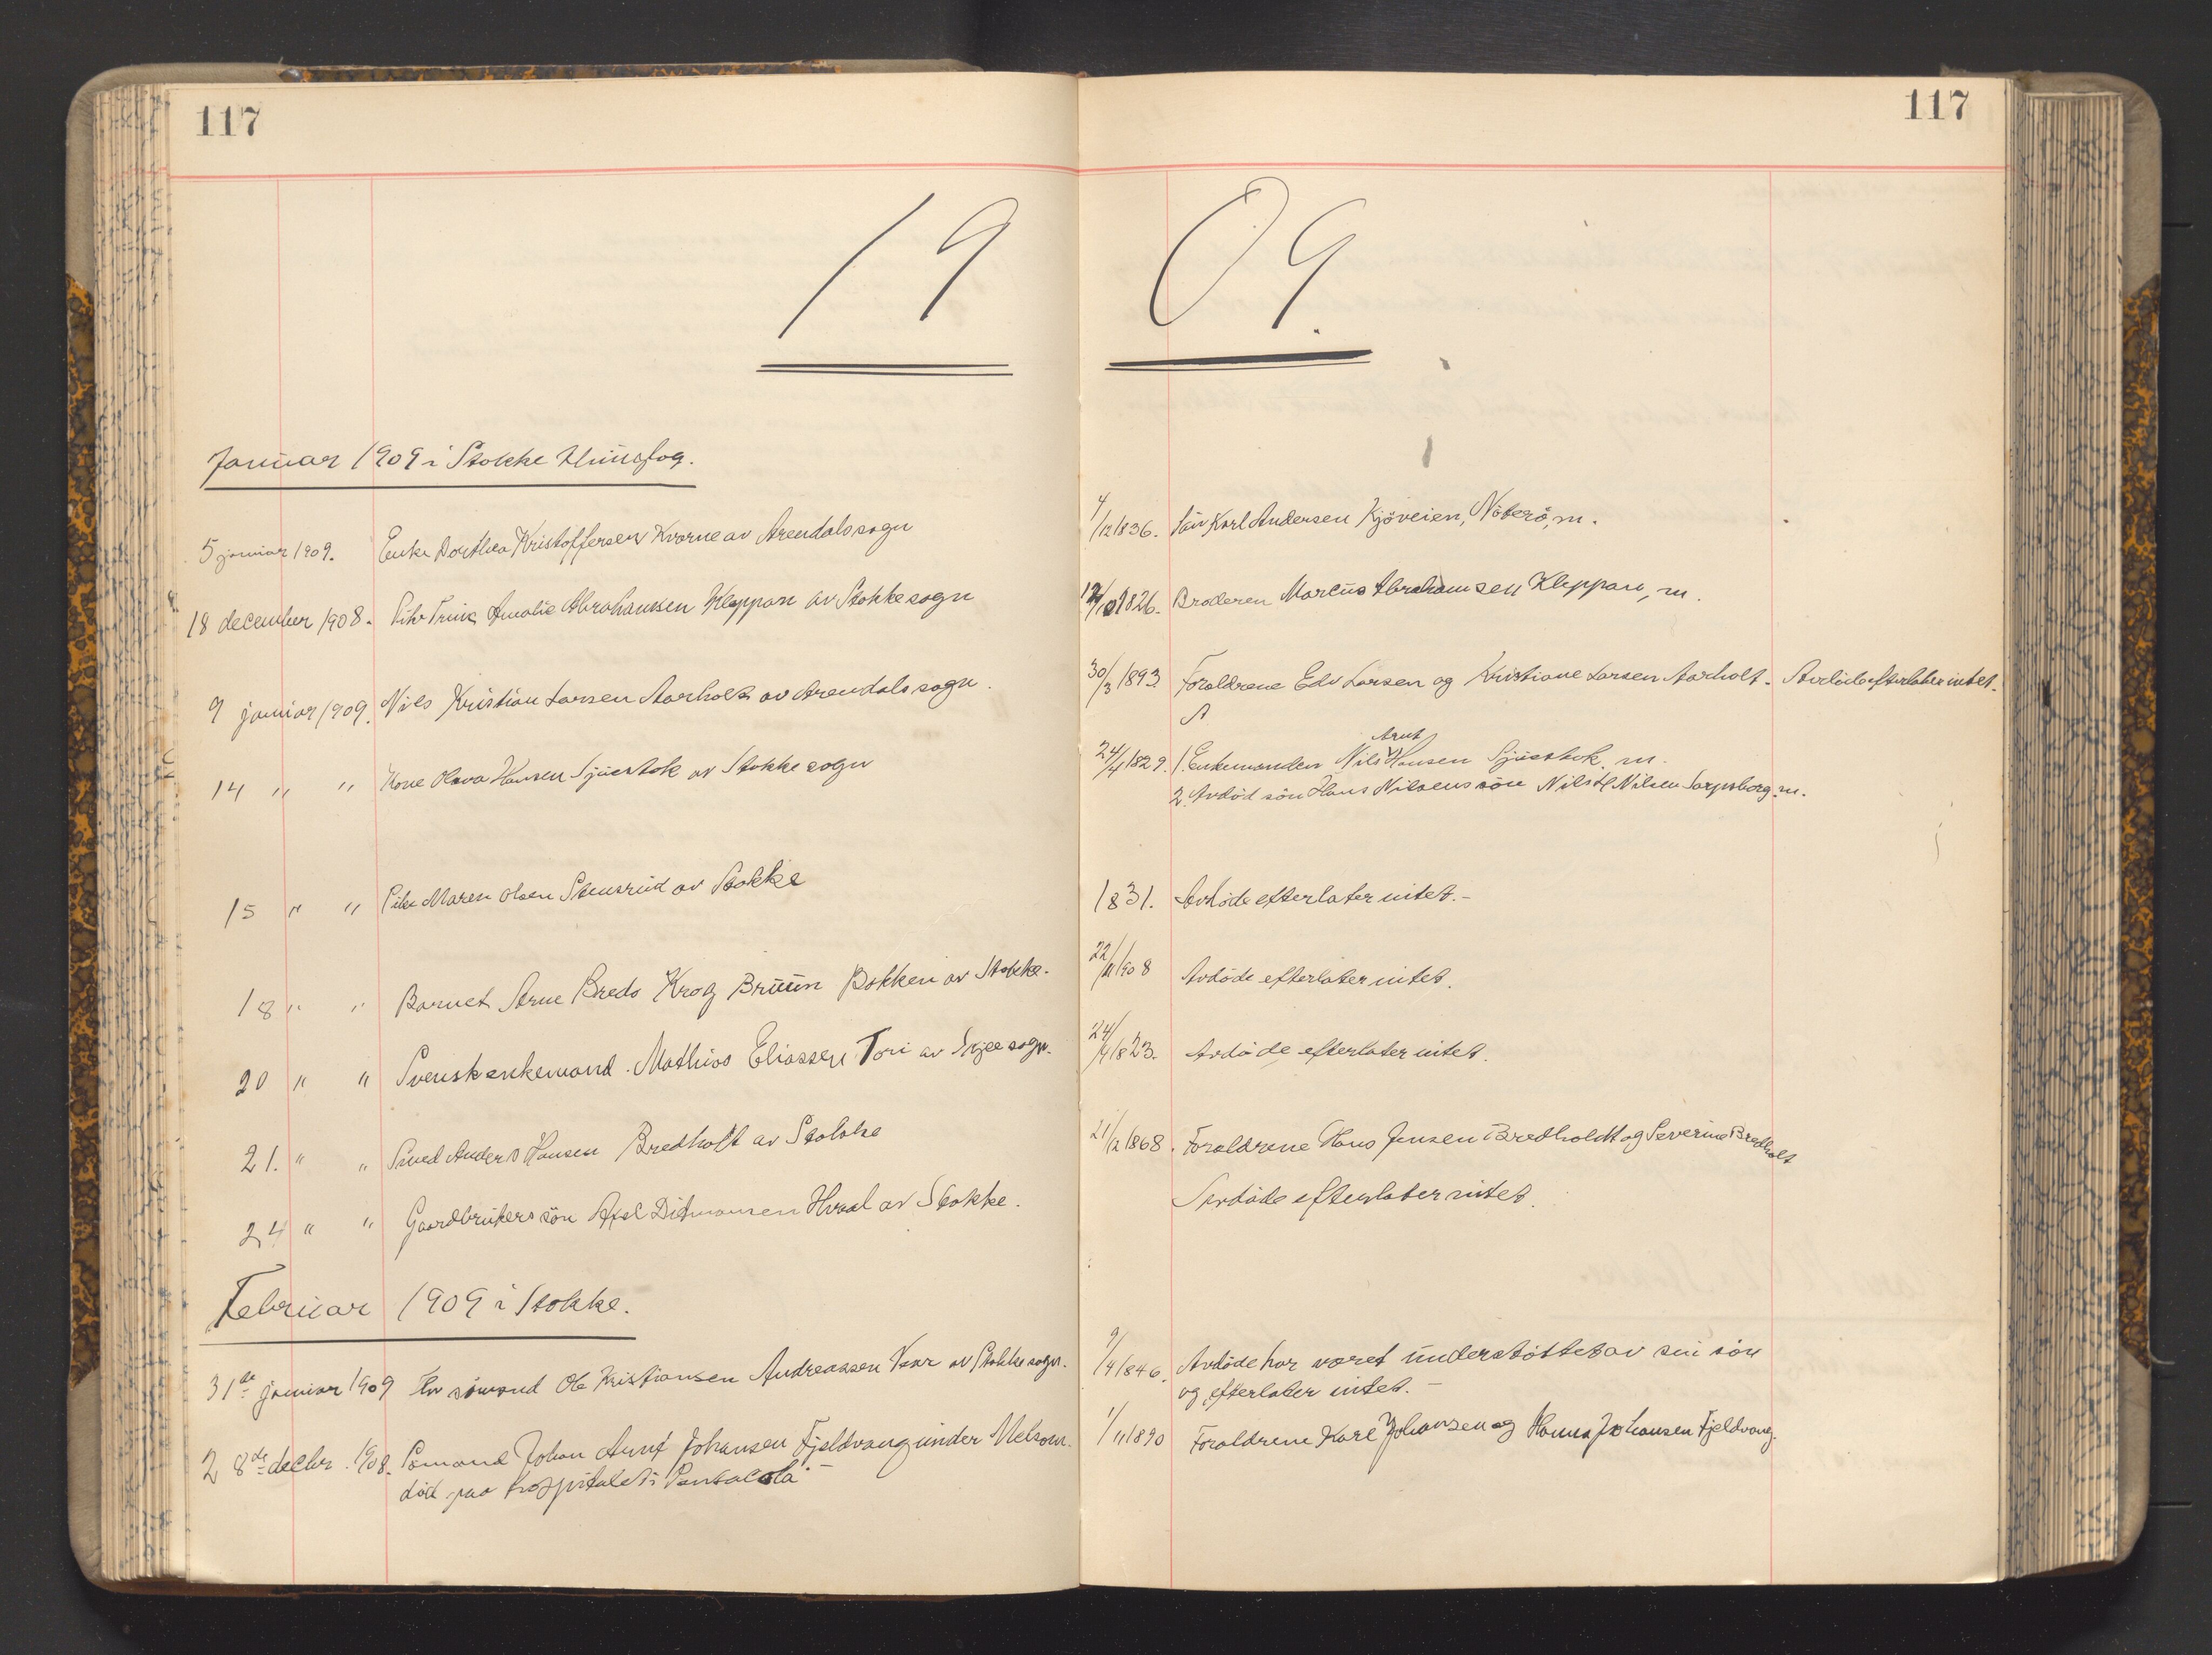 117
117
19 09.
Januar 1909 i Stokke
5 januar 1909. Enke Dorthea Kristoffersen Kvarne av Arendals sogn
4/12 1836. Karl Andersen Kjöveien, Nöterö, m.
18 december 1908. Pike Trine Amalie Abrahamsen Kleppan av Stokke sogn
1826. Broderen Marcus Abrahamsen Kleppan, m.
9 januar 1909. Nils Kristian Larsen Aarholt av Arendals sogn.
30/3 1893. Foraldrene Edv Larsen og Kristiane Larsen Aarholt. Avdöde efterlater intet.
14 " " Kone Olava Hansen Sjuestok av Stokke sogn
24/4 1829. 1. Enkemanden Nils Arnt Hansen Sjuestok. m.
2. Avdöd sön Hans Nilsens sön Nils H Nilsen Sarpsborg. m.
15 " " Pike Maren Olsen Stensrud av Stokke
1831. Avdöde efterlater intet.-
18 " " Barnet Arne Bredo Krog Bruun Bokken av Stokke.
22/11 1908 Avdöde efterlater intet.
20 " " Svensk enkemand. Mathias Eliassen Tori av Skjee sogn.
24/4 1823. Avdöde efterlater intet.
21. " " Smed Anders Hansen Bredholt av Stokke
21/12 1868. Foraldrene Hans Jensen Bredholdt og Severine Bredholt
24 " " Gaardbrukers sön Axel Ditmansen Hvaal av Stokke.
Avdöde efterlater intet.
Februar 1909 i Stokke.
31te januar 1909 sömand Ole Kristiansen Andreassen Vear av Stokke sogn.
9/4 1846. Avdöde har været understöttet av sin sön
og efterlater intet.-
28de decbr. 1908. Sömand Johan Arnt Johansen Fjeldvang under Melsom.
död paa hospitalet i Pensacola
1/11 1890 Foraldrene Karl Johansen og Hanna Johansen Fjeldvang.